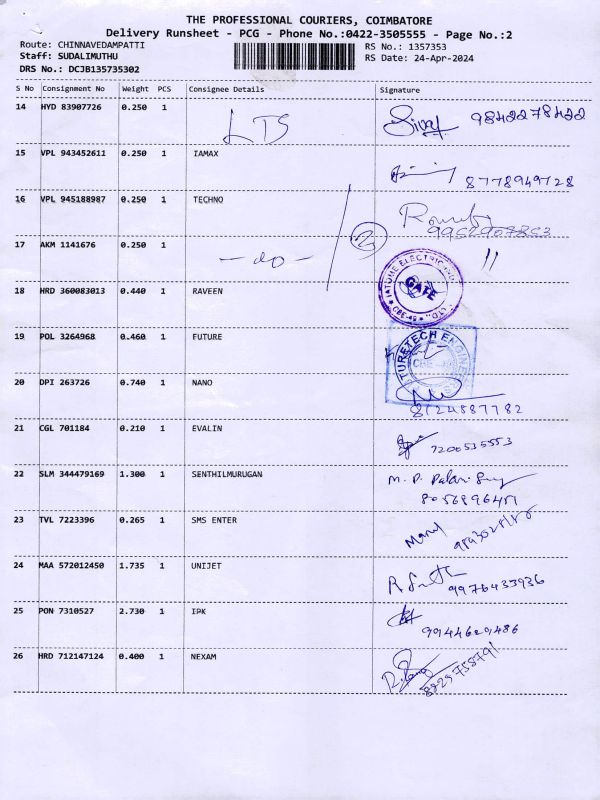 THE PROFESSIONAL COURIERS, COIMBATORE
Delivery Runsheet - PCG - Phone No.:0422-3505555 - Page No.:2
Route: CHINNAVEDAMPATTI RS No.: 1357353
Staff: SUDALIMUTHU RS Date: 24-Apr-2024
DRS No.: DCJB135735302
S No Consignment No Weight PCS Consignee Details Signature
14 HYD 83907726 0.250 1 LTS 9842278422
15 VPL 943452611 0.250 1 IAMAX 8778949728
16 VPL 945188987 0.250 1 TECHNO
17 AKM 1141676 0.250 1 - do - 2 "
GATE
18 HRD 360083013 0.440 1 RAVEEN
19 POL 3264968 0.460 1 FUTURE
20 DPI 263726 0.740 1 NANO 8124887782
21 CGL 701184 0.210 1 EVALIN 7200535553
22 SLM 344479169 1.300 1 SENTHILMURUGAN
23 TVL 7223396 0.265 1 SMS ENTER
24 MAA 572012450 1.735 1 UNIJET 9976433936
25 PON 7310527 2.730 1 IPK 9944629486
26 HRD 712147124 0.400 1 NEXAM